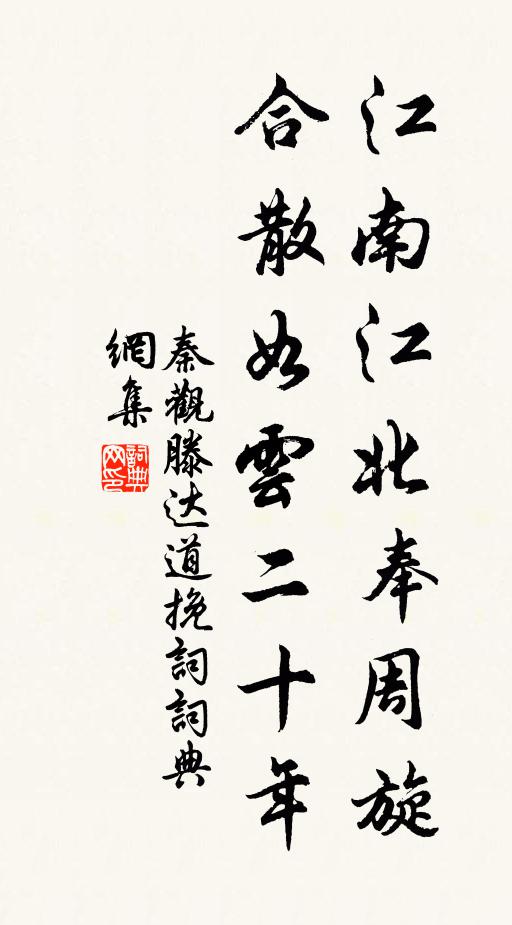 江南江北奉周旋
合散如雲二十年
秦觀滕达道挽詞詞典
網集
詞典
网印